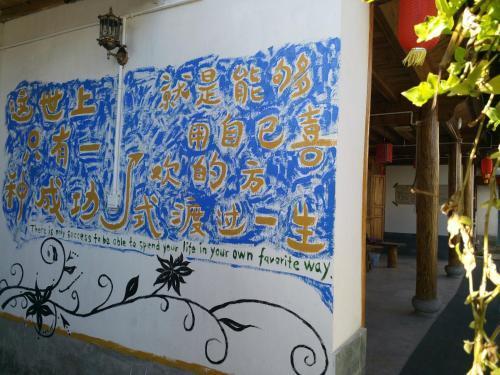 这世上
只有一
种成功
就是能够
用自己喜
欢的方
式渡过一生
There is only success-to be able to spend your life in your own favorite way.